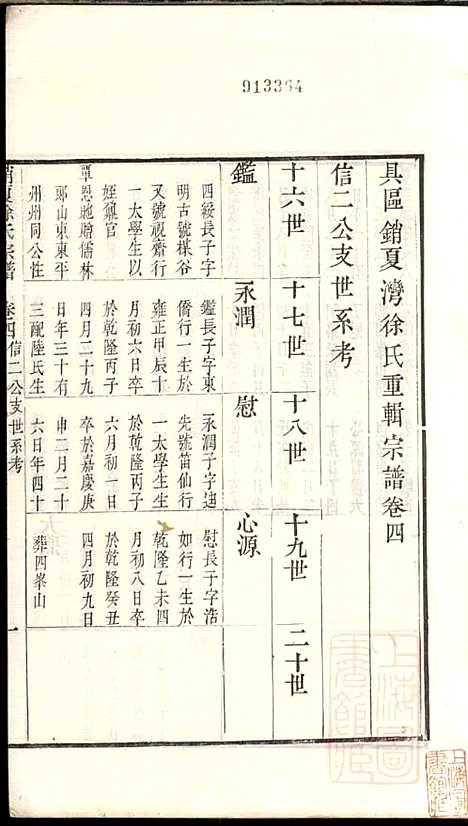 913364
具區銷夏灣徐氏重輯宗譜卷四
信二公支世系考
十六世
十七世
十八世
十九世
二十世
鑑
永潤
慰
心源
四綏長子字
明古號楳谷
又號視齋行
一太學生以
姪
官
覃恩貤贈儒林
郎山東東平
州州同公性
鑑長子字東
僑行一生於
雍正甲辰十
月初六日卒
於乾隆丙子
四月二十九
日年三十有
三配陸氏生
永潤子字迪
先號笛仙行
一太學生生
於乾隆丙子
六月初一日
卒於嘉慶庚
申二月二十
六日年四十
慰長子字浩
如行一生於
乾隆乙未四
月初八日卒
於乾隆癸丑
四月初九日
葬四峯山
銷夏徐氏宗譜
卷四信二公支世系考
一
上海圖書館藏
上海圖書館藏